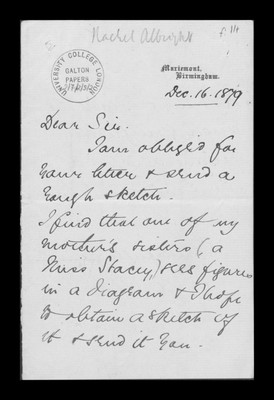 Rachel Albright
UNIVERSITY COLLEGE LONDON
GALTON
PAPERS
Mariemont,
Birmingham.
Dec. 16. 1879
Dear Sir.
I am obliged for
your letter & send a
rough sketch.
I find that one of my
mother's sisters (a
Miss Stacey) sees figures
in a diagram & I hope
to obtain a sketch of
it & send it you.